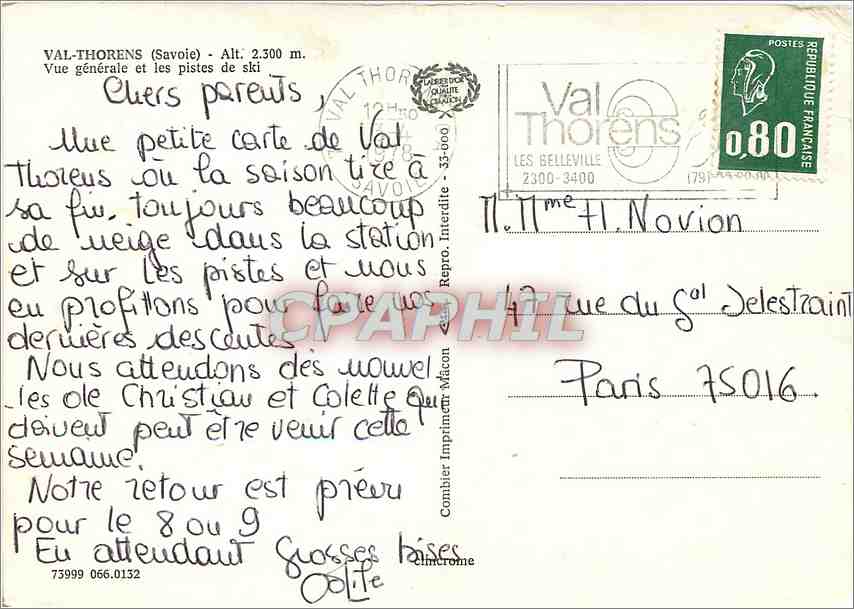 VAL-THORENS (Savoie) - Alt. 2.300 m.
Vue générale et les pistes de ski
Chers parents,
Une petite carte de Val
Thorens où la saison tire à
sa fin, toujours beaucoup
de neige dans la station
et sur les pistes et nous
en profitons pour faire nos
dernières descentes !
Nous attendons des nouvel.
les de Christian et Colette qui
doivent peut être venir cette
semaine.
Notre retour est prévu
pour le 8 ou 9
En attendant grosses bises
Odile
73999 066.0132
cimcrome
Combier Imprimeur Mâcon Repro. Interdite - 33-000
LAURIER D'OR
QUALITÉ
CRÉATION
VAL THORENS
12H
1978
SAVOIE
Val
Thorens
LES BELLEVILLE
2300-3400
POSTES
RÉPUBLIQUE FRANÇAISE
0,80
M. Mme H. Novion
47 rue du Gal Delestraint
Paris 75016
CPAPHIL